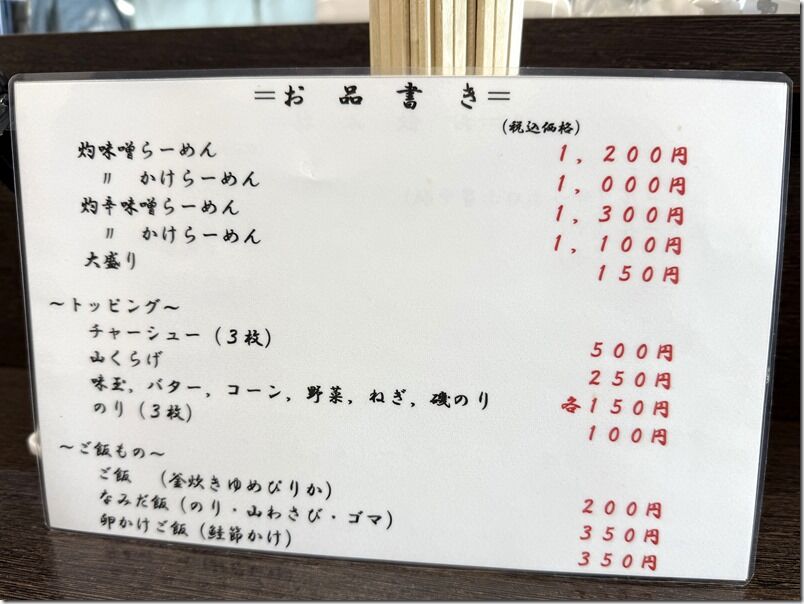 =お品書き=
(税込価格)
灼味噌らーめん 1,200円
〃 かけらーめん 1,000円
灼辛味噌らーめん 1,300円
〃 かけらーめん 1,100円
大盛り 150円
～トッピング～
チャーシュー(3枚) 500円
山くらげ 250円
味玉,バター,コーン,野菜,ねぎ,磯のり 各150円
のり(3枚) 100円
～ご飯もの～
ご飯 (釜炊きゆめぴりか) 200円
なみだ飯(のり・山わさび・ゴマ) 350円
卵かけご飯(鮭節かけ) 350円